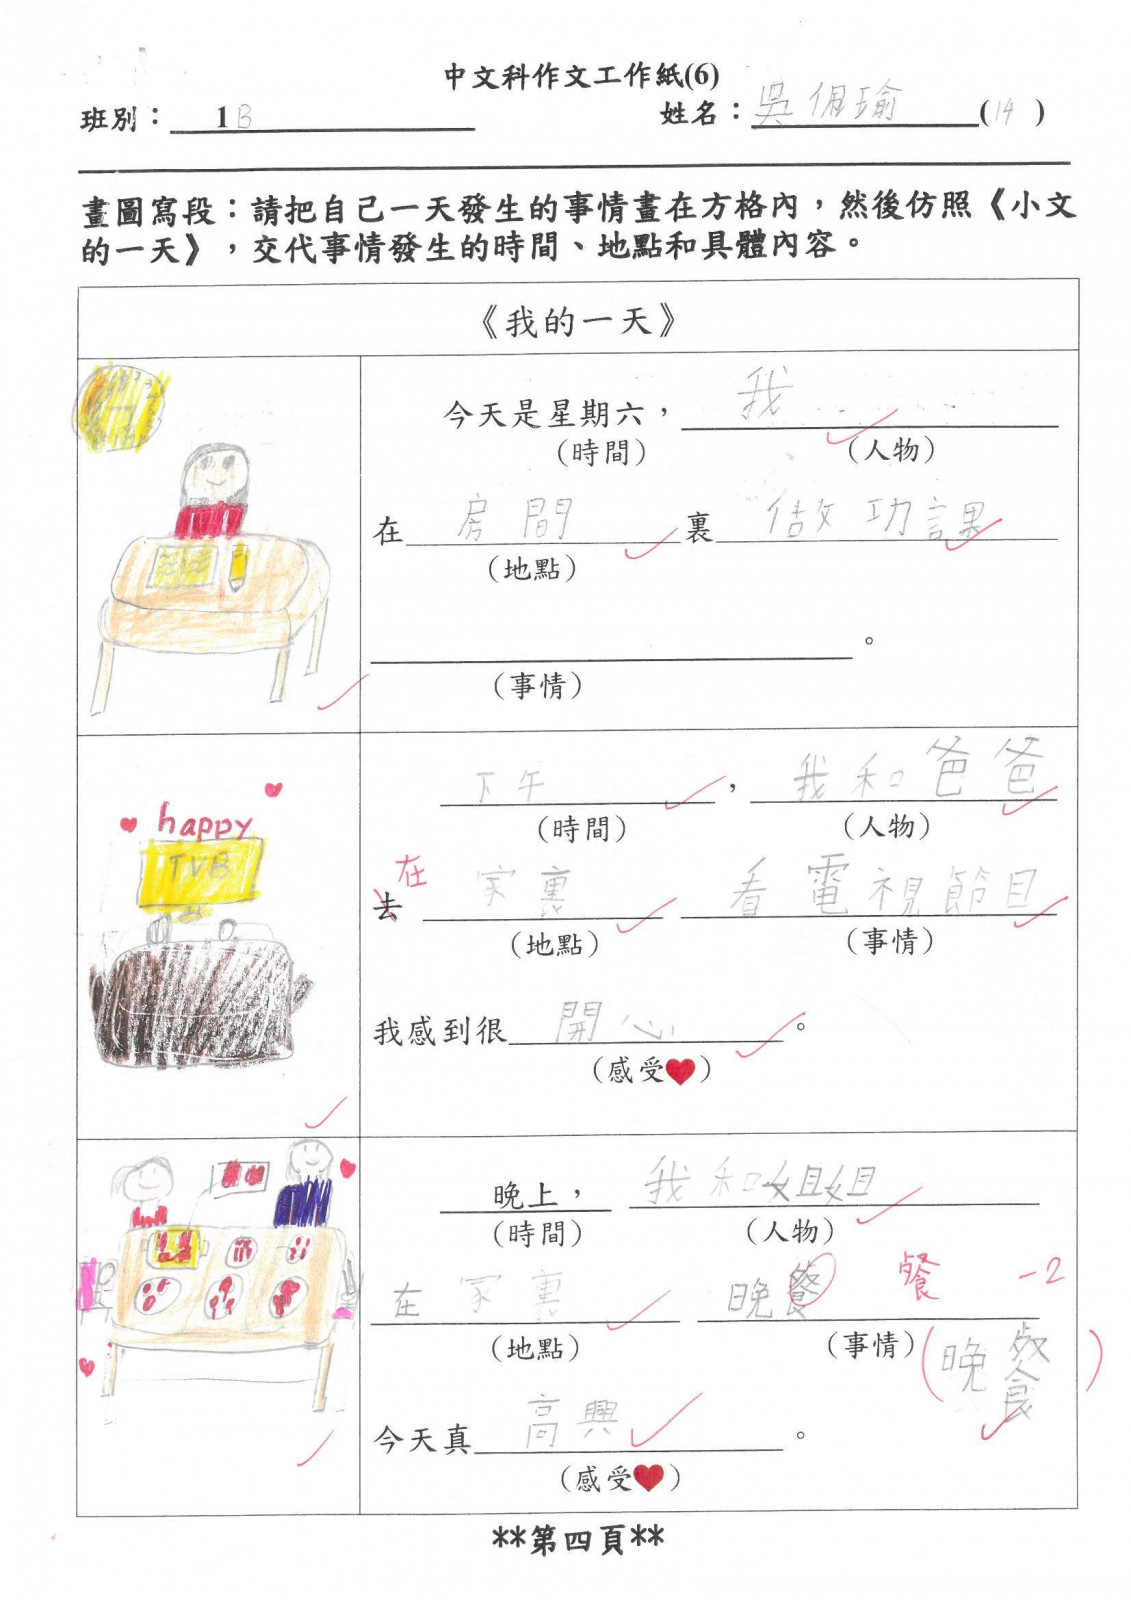 中文科作文工作紙(6)
班別：1B 姓名：吳佩瑜(14)
畫圖寫段：請把自己一天發生的事情畫在方格內，然後仿照《小文
的一天》，交代事情發生的時間、地點和具體內容。
《我的一天》
今天是星期六，我
(時間) (人物)
在房間裏做功課
(地點)
。
(事情)
happy
TVB
下午，我和爸爸
(時間) (人物)
在
去家裏看電視節目
(地點) (事情)
我感到很開心。
(感受❤)
晚上，我和姐姐
(時間) (人物)
在家裏晚餐 餐 -2
(地點) (事情) (晚餐)
今天真高興。
(感受❤)
**第四頁**